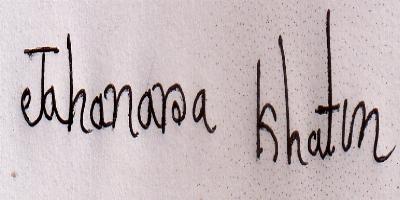 Jahanara Khatun